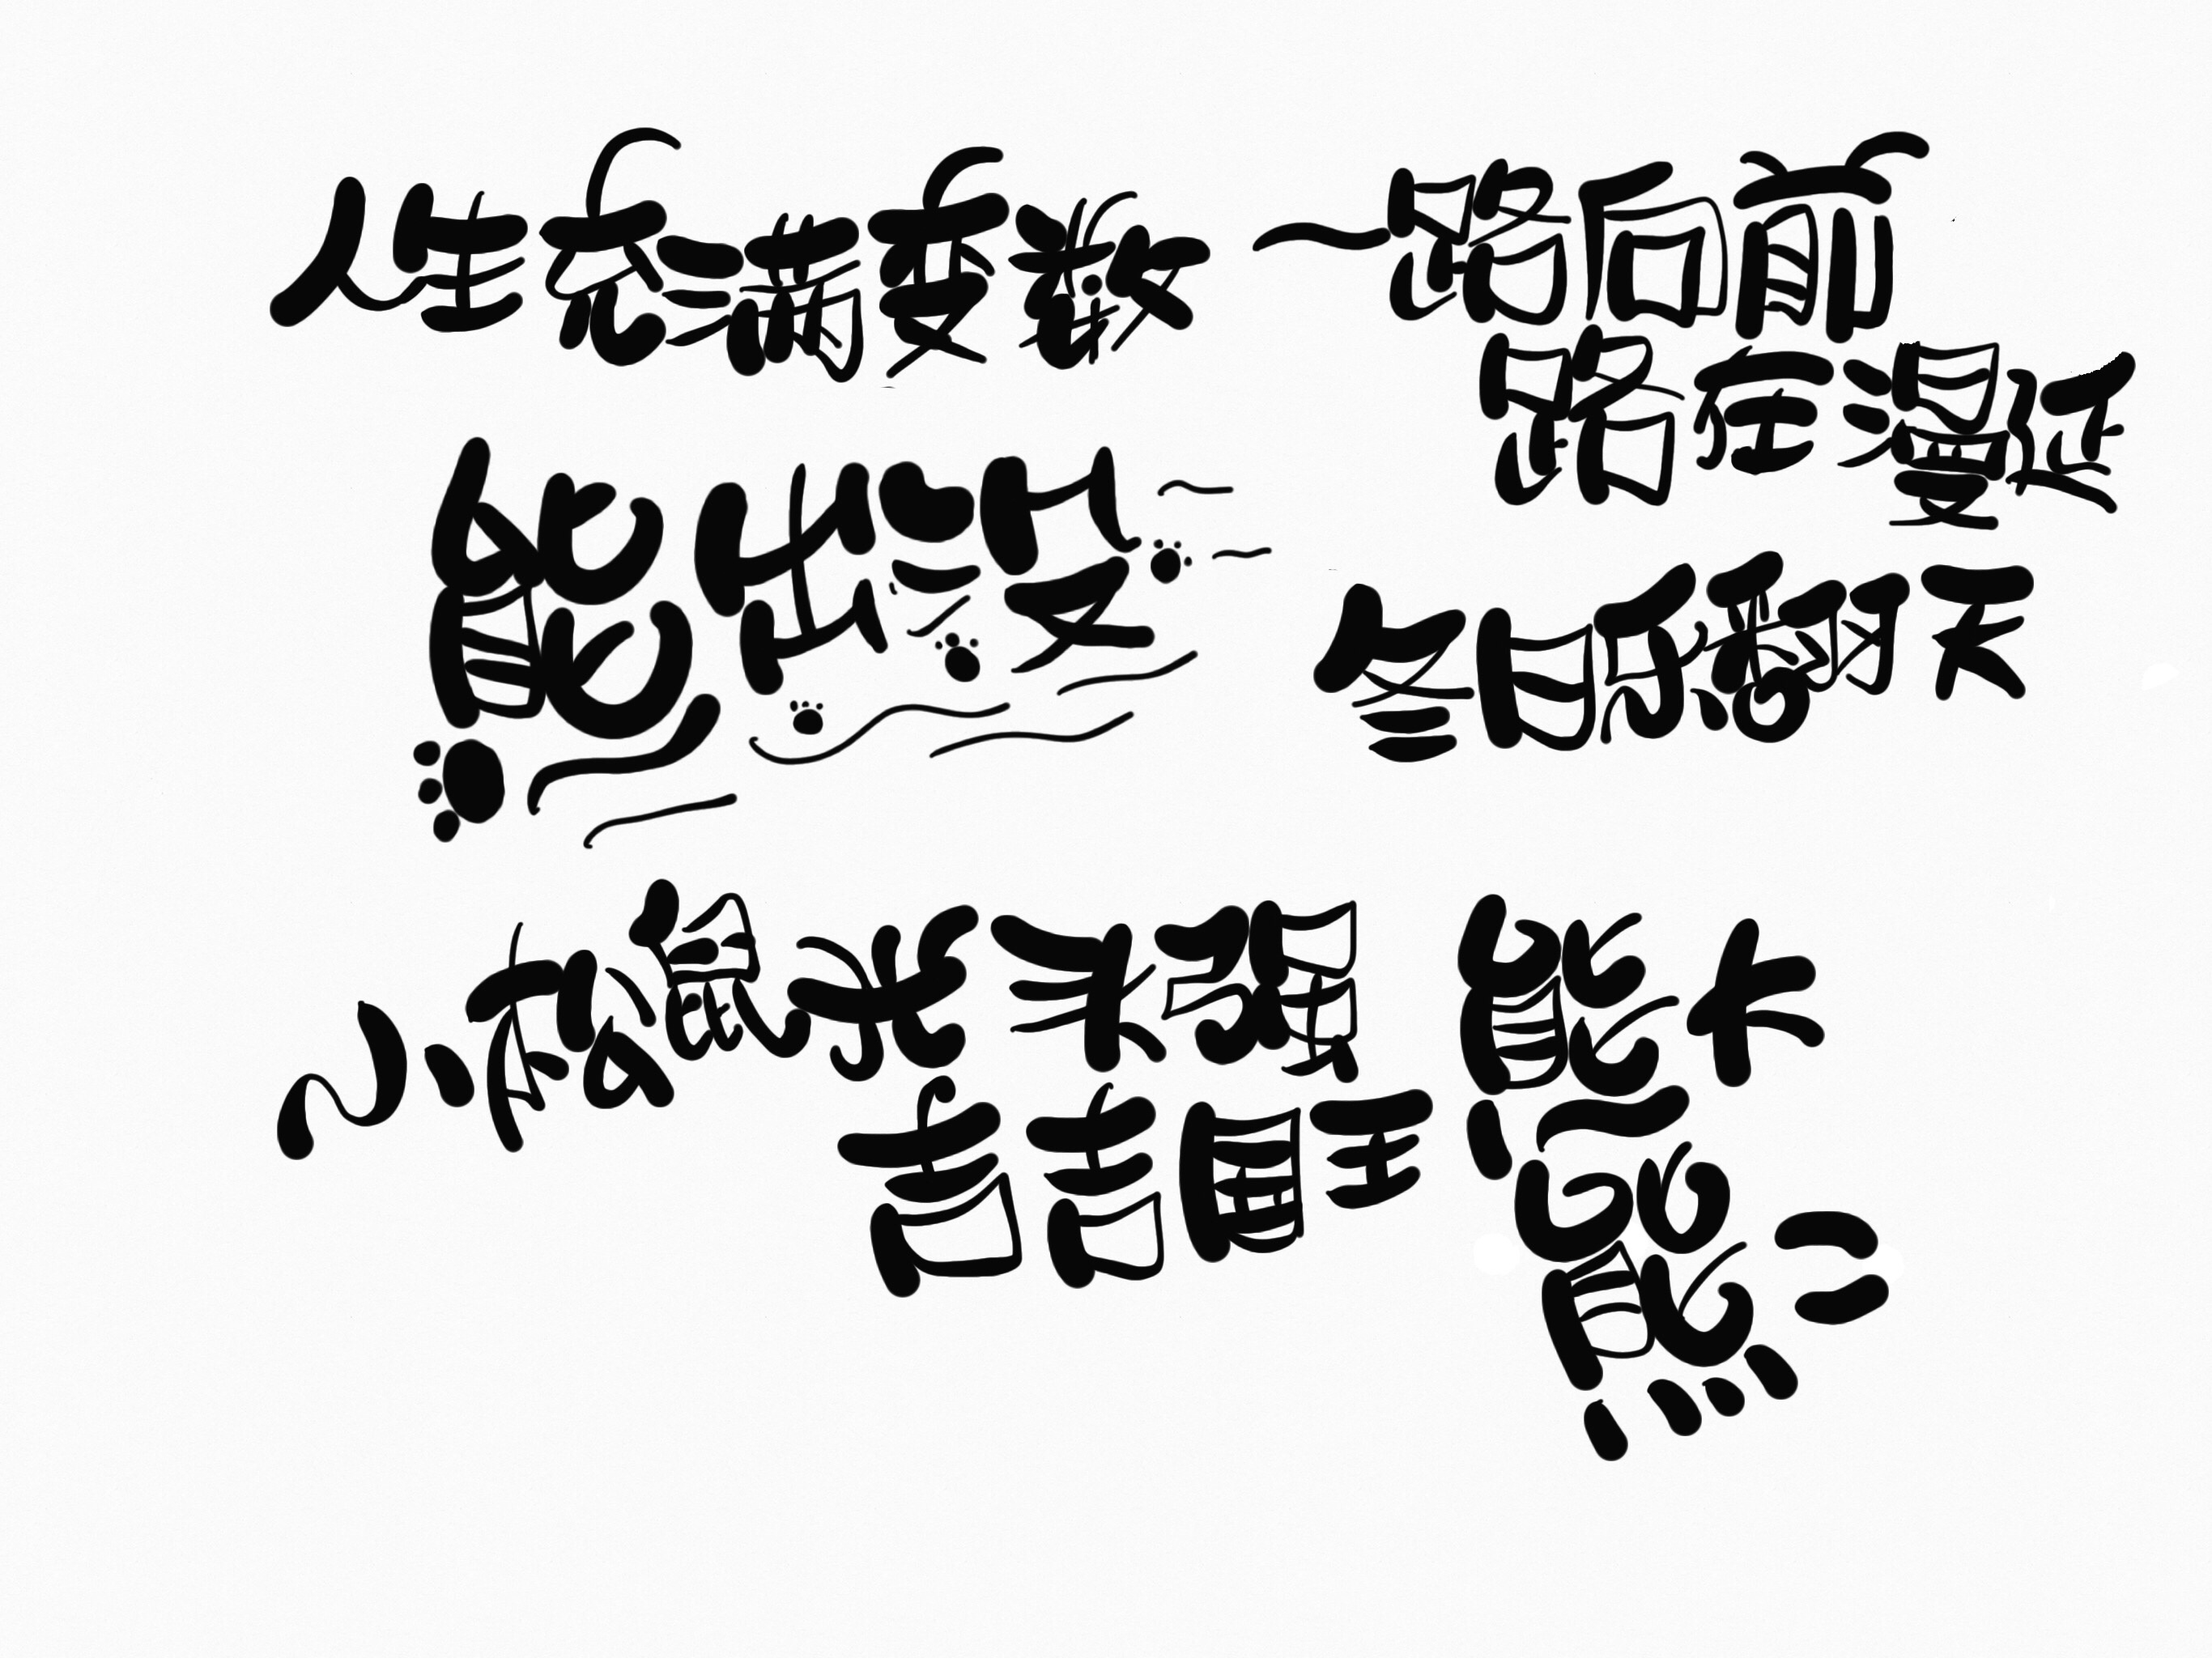 人生充满变数
一路向前
路在漫延
熊出没
冬日乐翻天
小松鼠 光头强
吉吉国王
熊大
熊二